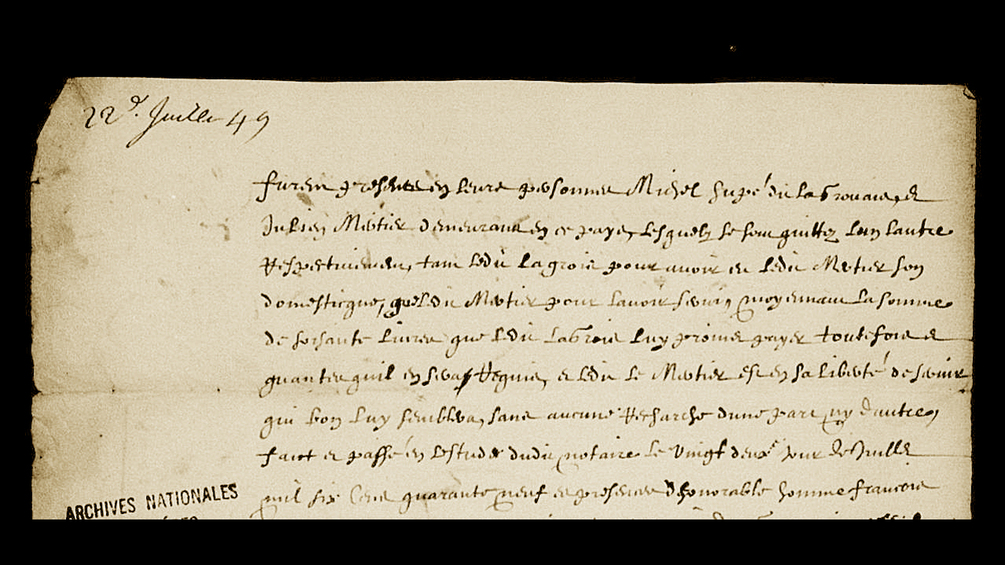 22e. Juillet 49
furent presents en leurs personnes Michel dupé dit la
Julien Mestier demeurant en ce pays, lesquels se sont quittez lun lautre
Respectivement, tant ledit Lagroie pour avoir eu ledit Mestier son
domesticque, que ledit Mestier pour lavoir servi, moyennant la somme
de soixante livres que ledit Lagroie luy promis payer toutefois et
quantes quil en sera Requis, et ledit le Mestier est en sa liberté de servir
qui bon luy semblera, sans aucune Recherche dune part ny dautre,
faict et passé en lestude dudit notaire le vingt deuxe jour de Juillet
mil six cens quarante neuf en presence dhonorable homme francois
ARCHIVES NATIONALES